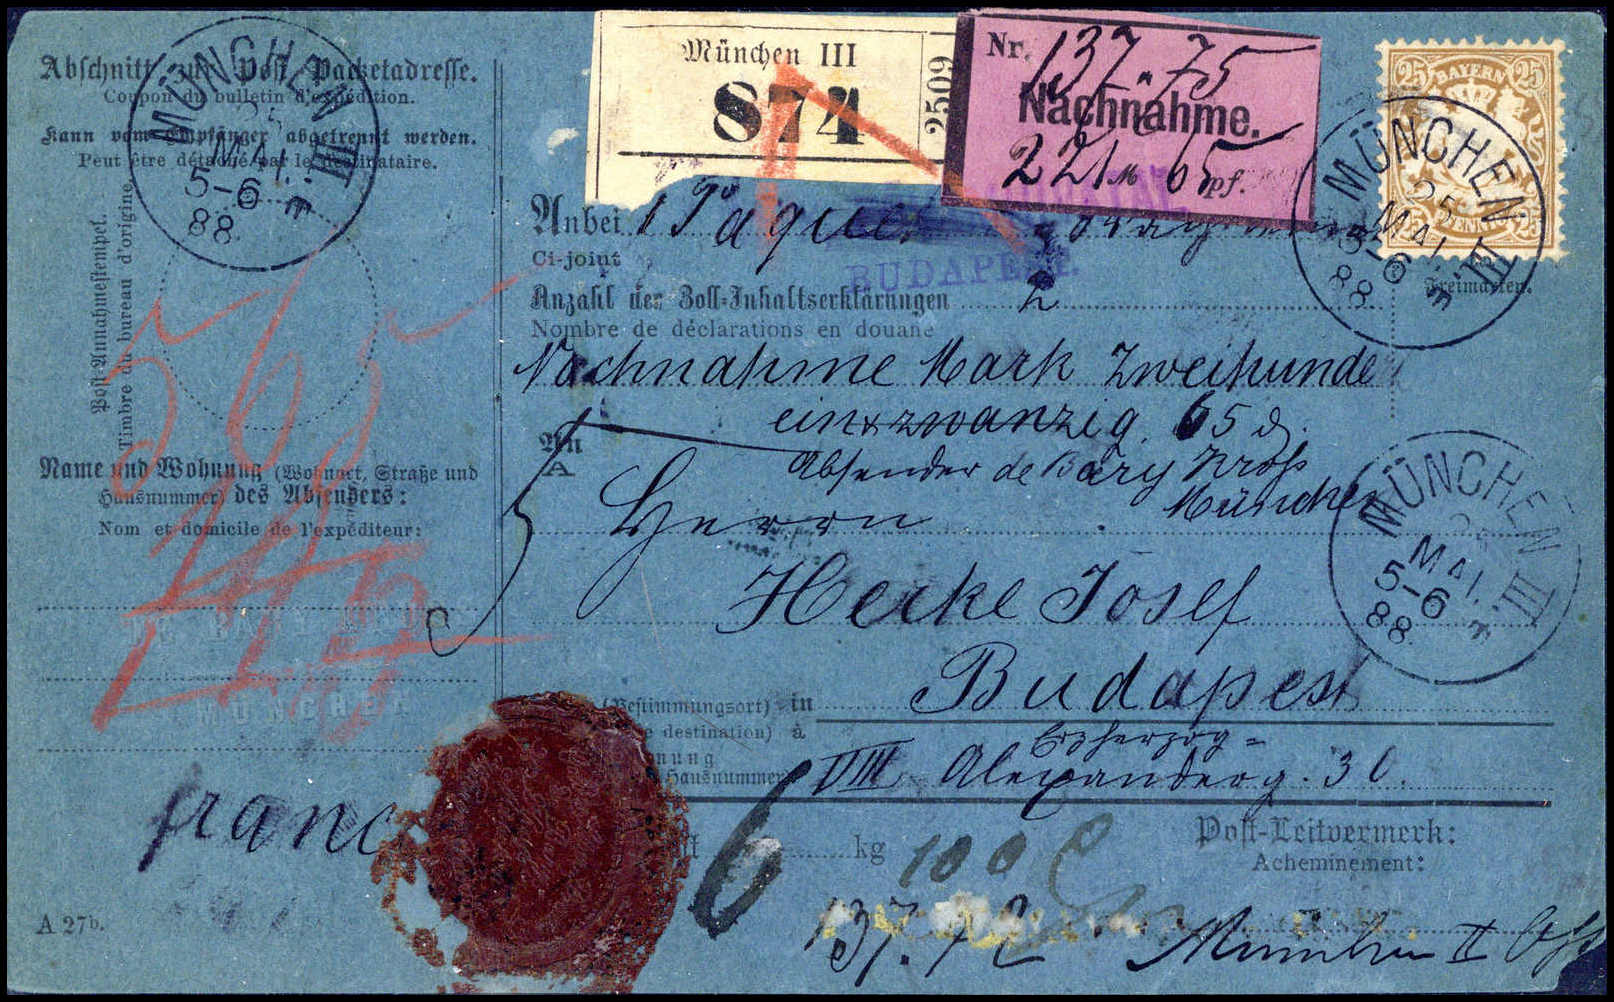 Abschnitt zur Post-Packetadresse.
Coupon du bulletin d'expédition.
Kann vom Empfänger abgetrennt werden.
Peut être détaché par le destinataire.
MÜNCHEN III.
25
MAI.
5-6
88.
Post-Annahmestempel.
Timbre du bureau d'origine.
565
Name und Wohnung (Wohnort, Straße und
Hausnummer) des Absenders:
Nom et domicile de l'expéditeur:
MÜNCHEN
franc
A 27b.
München III
874
2509
Nr. 137.75
Nachnahme.
221 M 65 pf.
25 BAYERN 25
25 PFENNIG 25
MÜNCHEN III.
25.
MAI.
5-6
88.
Freimarken.
Anbei 1 Paquet
Ci-joint
BUDAPEST.
Anzahl der Zoll-Inhaltserklärungen 2
Nombre de déclarations en douane
Nachnahme Mark Zweihunde
ein & zwanzig 65 d.
An
A
Absender de Bary
München
Herrn
MÜNCHEN III.
MAI.
5-6
88.
Herke Josef
(Bestimmungsort) in Budapest
e destination) à
Erzherzog=
nung
Hausnummer VIII Alexanderg. 30.
6 kg
100
Post-Leitvermerk:
Acheminement:
137.72
München II